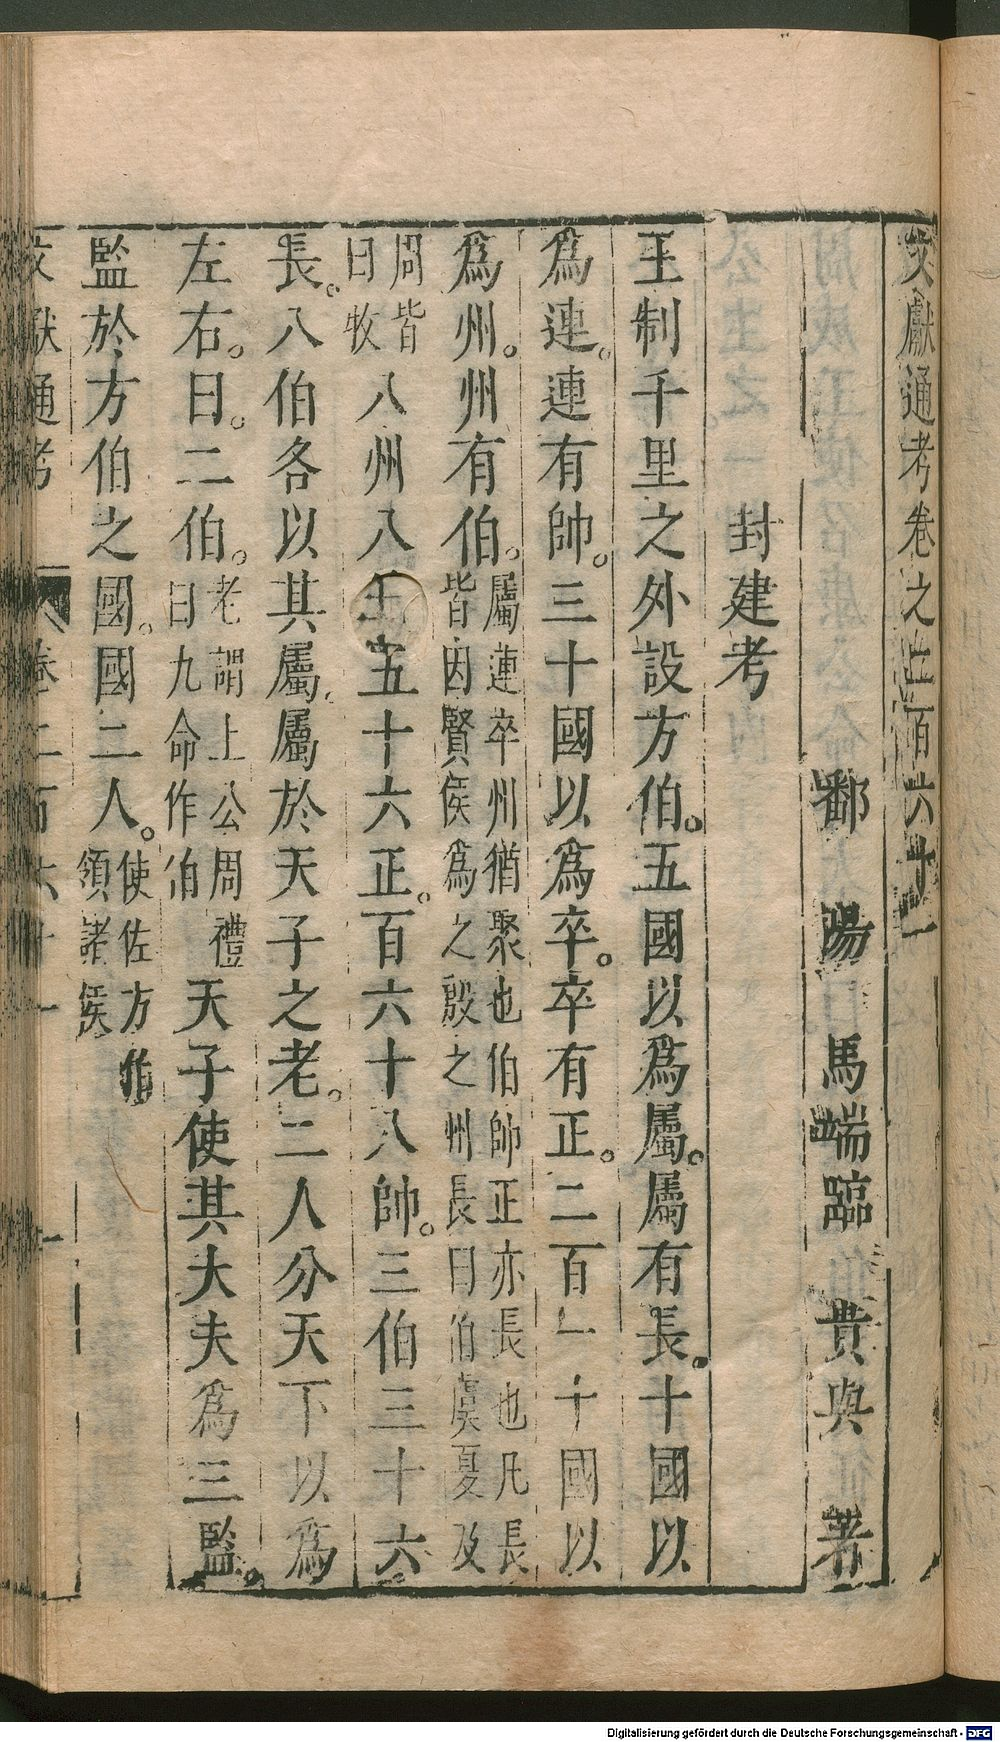 文獻通考卷之二百六十一
鄱陽馬端臨貴與著
封建考
王制千里之外設方伯。五國以爲屬。屬有長。十國以
爲連。連有帥。三十國以爲卒。卒有正。二百一十國以
爲州。州有伯。屬連卒州猶聚也伯帥正亦長也凡長皆因賢侯爲之殷之州長曰伯虞夏及
周皆曰牧八州八五十六正。百六十八帥。三百三十六
長。八伯各以其屬屬於天子之老。二人分天下以爲
左右。曰。二伯。老謂上公周禮曰九命作伯天子使其大夫爲三監。
監於方伯之國。國二人。使佐方伯領諸侯
文獻通考 卷二百六十一 一
Digitalisierung gefördert durch die Deutsche Forschungsgemeinschaft - DFG